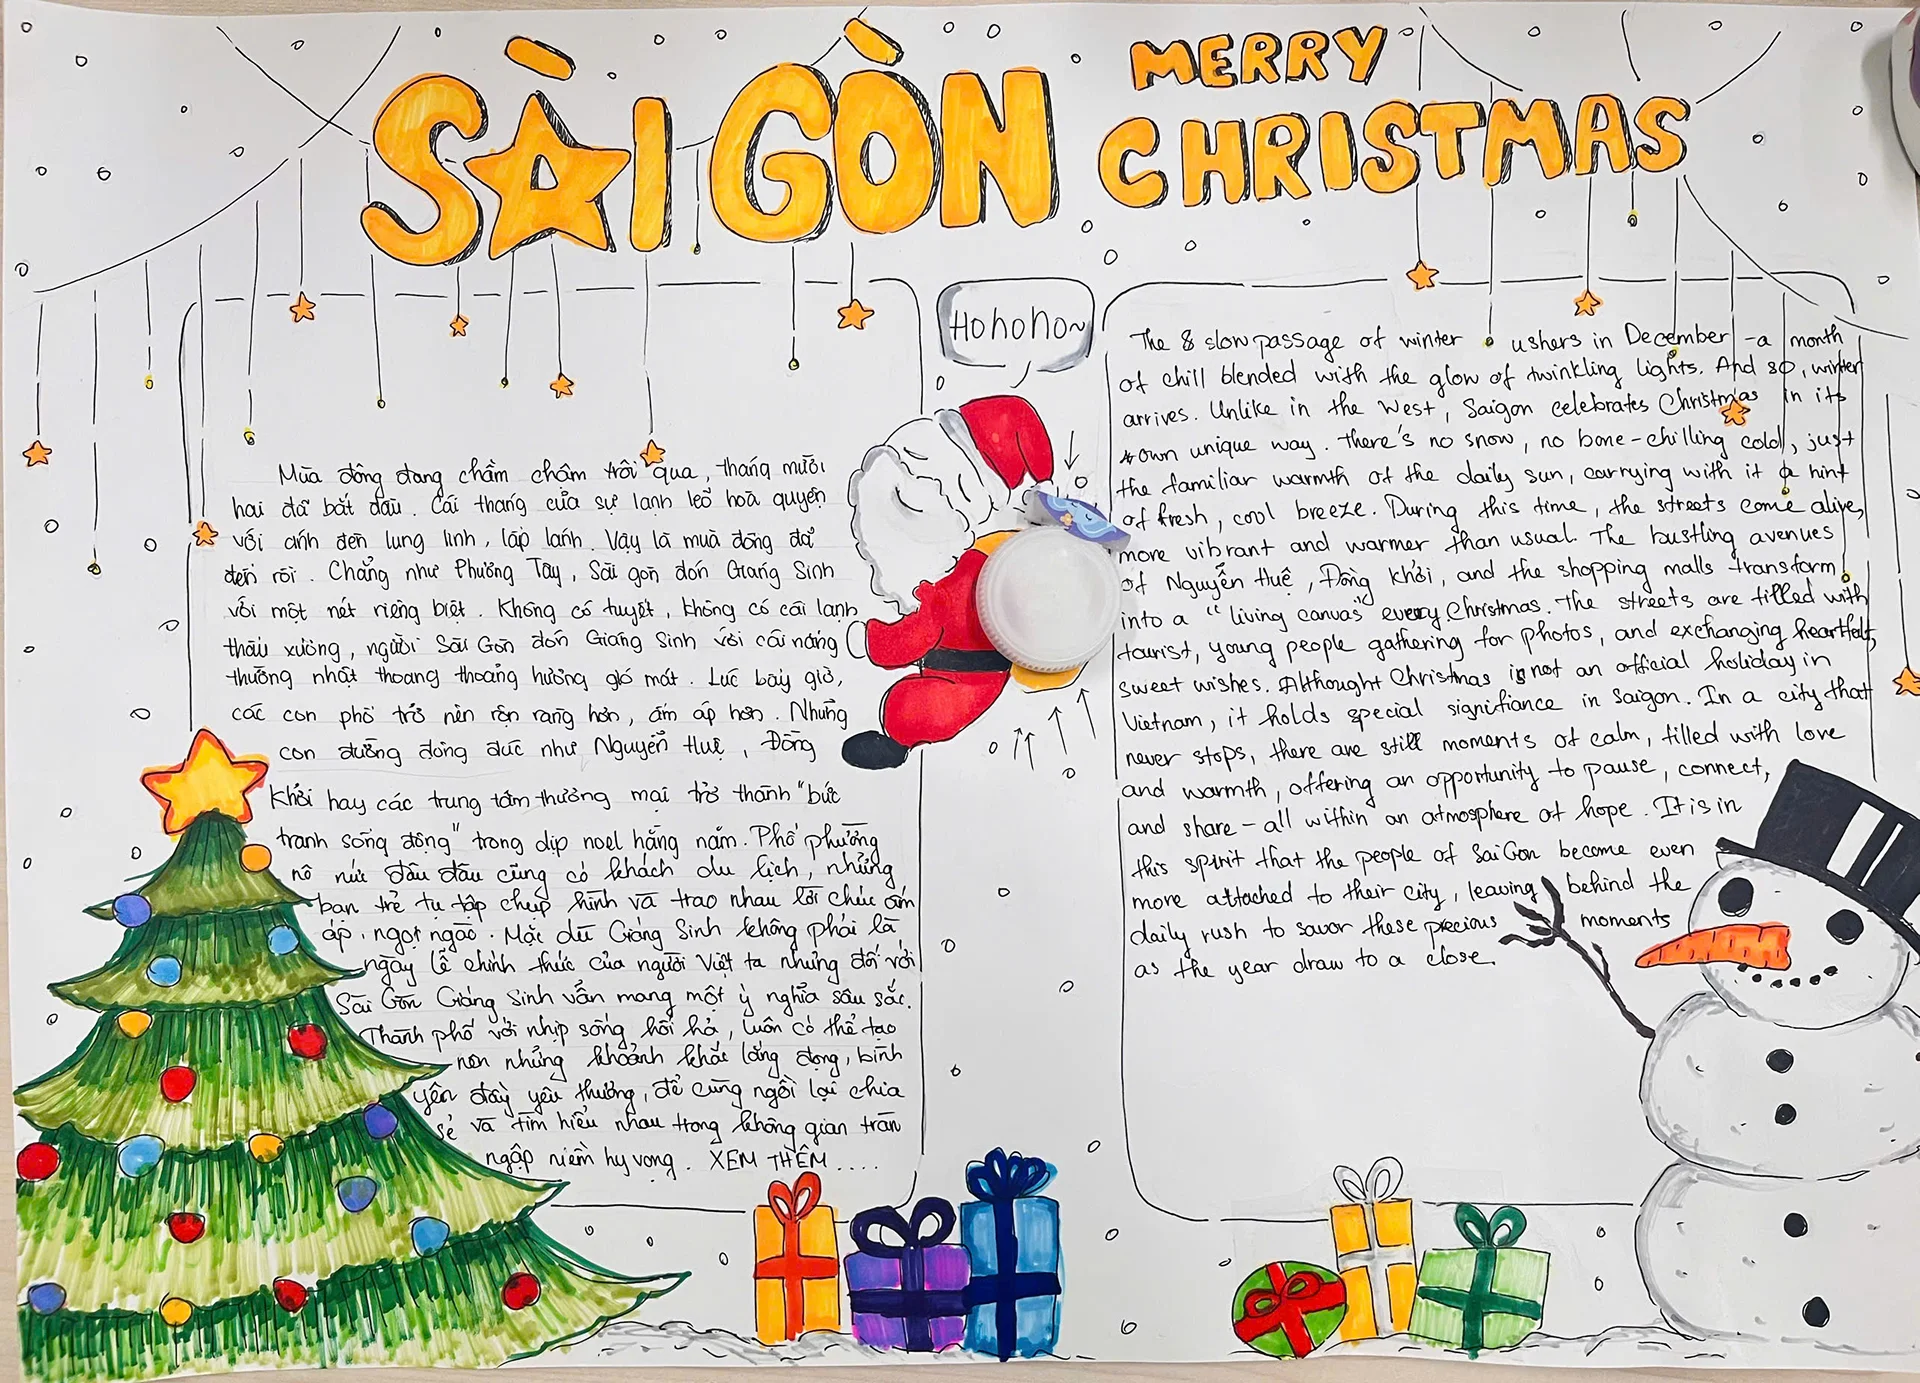 SÀI GÒN
MERRY
CHRISTMAS
Hohoho~
Mùa đông đang chầm chậm trôi qua, tháng mười
hai đã bắt đầu. Cái tháng của sự lạnh lẽo hoà quyện
với ánh đèn lung linh, lấp lánh. Vậy là mùa đông đã
đến rồi. Chẳng như Phương Tây, Sài gòn đón Giáng Sinh
với một nét riêng biệt. Không có tuyết, không có cái lạnh
thấu xương, người Sài Gòn đón Giáng Sinh với cái nắng
thường nhật thoang thoảng hương gió mát. Lúc bấy giờ,
các con phố trở nên rộn ràng hơn, ấm áp hơn. Những
con đường đông đúc như Nguyễn Huệ, Đồng
Khởi hay các trung tâm thương mại trở thành "bức
tranh sống động" trong dịp noel hằng năm. Phố phường
nô nức đâu đâu cũng có khách du lịch, những
bạn trẻ tụ tập chụp hình và trao nhau lời chúc ấm
áp, ngọt ngào. Mặc dù Giáng Sinh không phải là
ngày lễ chính thức của người Việt ta nhưng đối với
Sài Gòn Giáng Sinh vẫn mang một ý nghĩa sâu sắc.
Thành phố với nhịp sống hối hả, luôn có thể tạo
nên những khoảnh khắc lắng đọng, bình
yên đầy yêu thương, để cùng ngồi lại chia
sẻ và tìm hiểu nhau trong không gian tràn
ngập niềm hy vọng. XEM THÊM ....
The 8 slow passage of winter ushers in December - a month
of chill blended with the glow of twinkling lights. And so, winter
arrives. Unlike in the West, Saigon celebrates Christmas in its
own unique way. There's no snow, no bone-chilling cold, just
the familiar warmth of the daily sun, carrying with it a hint
of fresh, cool breeze. During this time, the streets come alive,
more vibrant and warmer than usual. The bustling avenues
of Nguyễn Huệ, Đồng Khởi, and the shopping malls transform
into a "living canvas" every Christmas. The streets are filled with
tourist, young people gathering for photos, and exchanging heartfelt,
sweet wishes. Althought Christmas is not an official holiday in
Vietnam, it holds special signifiance in Saigon. In a city that
never stops, there are still moments of calm, filled with love
and warmth, offering an opportunity to pause, connect,
and share - all within an atmosphere of hope. It is in
this spirit that the people of SaiGon become even
more attached to their city, leaving behind the
daily rush to savor these precious moments
as the year draw to a close.